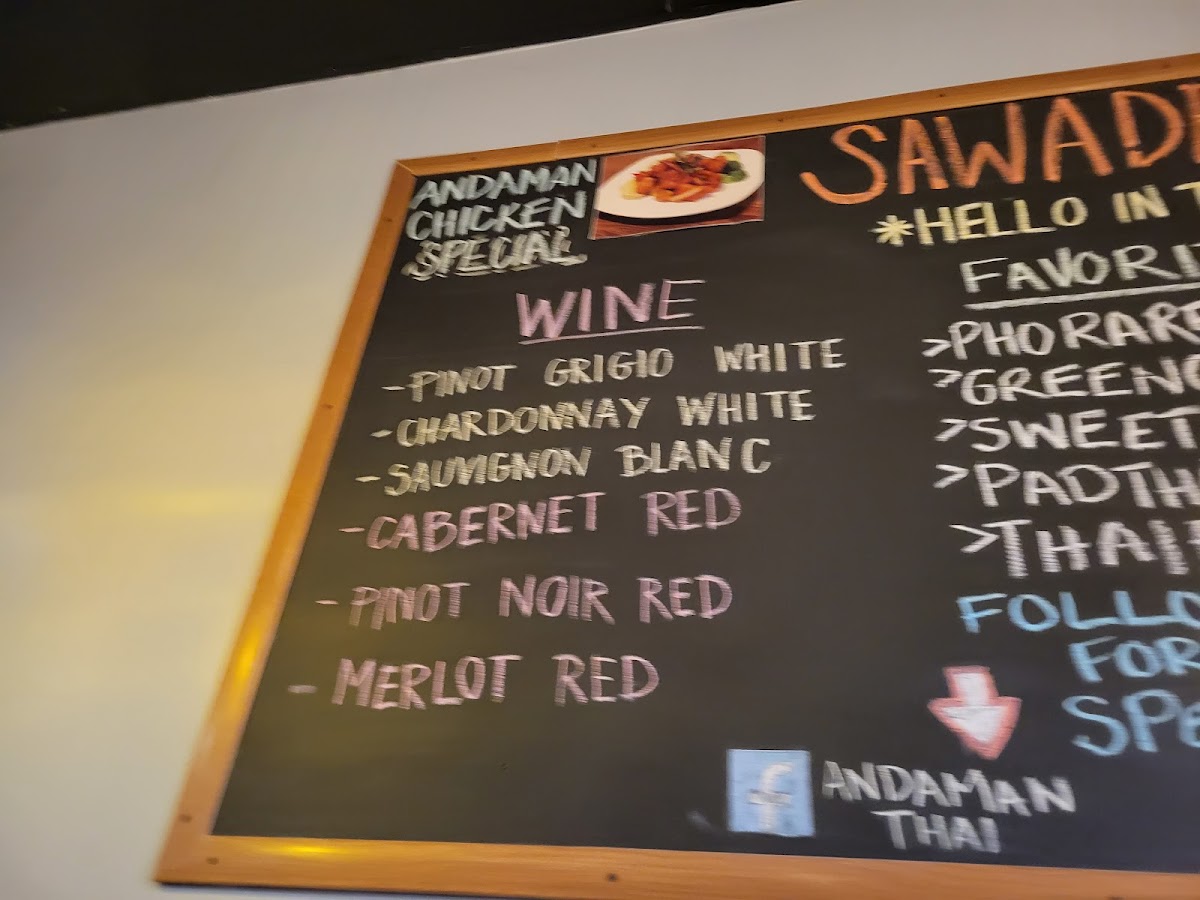 ANDAMAN
CHICKEN
SPECIAL
WINE
- PINOT GRIGIO WHITE
- CHARDONNAY WHITE
- SAUVIGNON BLANC
- CABERNET RED
- PINOT NOIR RED
- MERLOT RED
SAWAD
*HELLO IN T
FAVORI
>PHORARE
>GREENC
>SWEET
>PADTHA
>THAI
FOLLO
FOR
SPe
f ANDAMAN
THAI